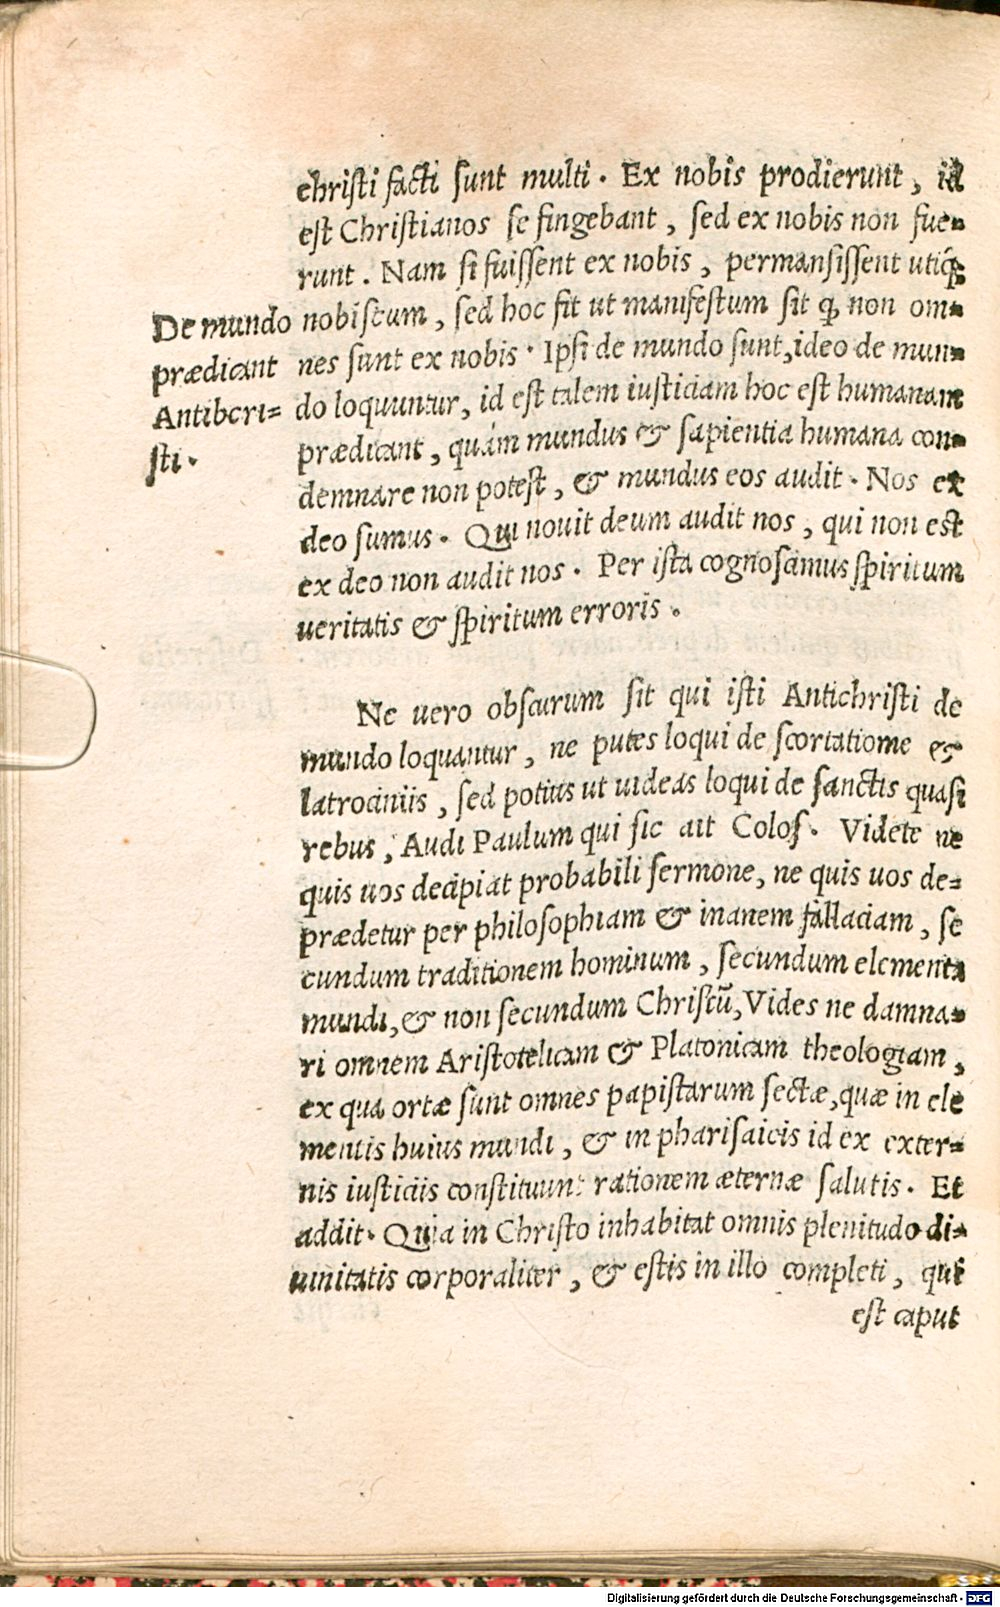 christi facti sunt multi. Ex nobis prodierunt, id
est Christianos se fingebant, sed ex nobis non fue-
runt. Nam si fuissent ex nobis, permansissent utiq́;
nobiscum, sed hoc fit ut manifestum sit ꝙ non om-
nes sunt ex nobis. Ipsi de mundo sunt, ideo de mun-
do loquuntur, id est talem iusticiam hoc est humanam
prædicant, quám mundus & sapientia humana con-
demnare non potest, & mundus eos audit. Nos ex
deo sumus. Qui nouit deum audit nos, qui non est
ex deo non audit nos. Per ista cognoscimus spiritum
ueritatis & spiritum erroris.
De mundo
prædicant
Antibcri=
sti.
Ne uero obscurum sit qui isti Antichristi de
mundo loquantur, ne putes loqui de scortatiome &
latrociniis, sed potius ut uideas loqui de sanctis quasi
rebus, Audi Paulum qui sic ait Colos. Videte ne
quis uos decipiat probabili sermone, ne quis uos de=
prædetur per philosophiam & inanem fallaciam, se
cundum traditionem hominum, secundum elementa
mundi, & non secundum Christū, Vides ne damna-
ri omnem Aristotelicam & Platonicam theologiam,
ex qua ortæ sunt omnes papistarum sectæ, quæ in ele
mentis huius mundi, & in pharisaicis id ex exter=
nis iusticiis constituunt rationem æternæ salutis. Et
addit. Quia in Christo inhabitat omnis plenitudo di-
uinitatis corporaliter, & estis in illo completi, qui
est caput
Digitalisierung gefördert durch die Deutsche Forschungsgemeinschaft - DFG